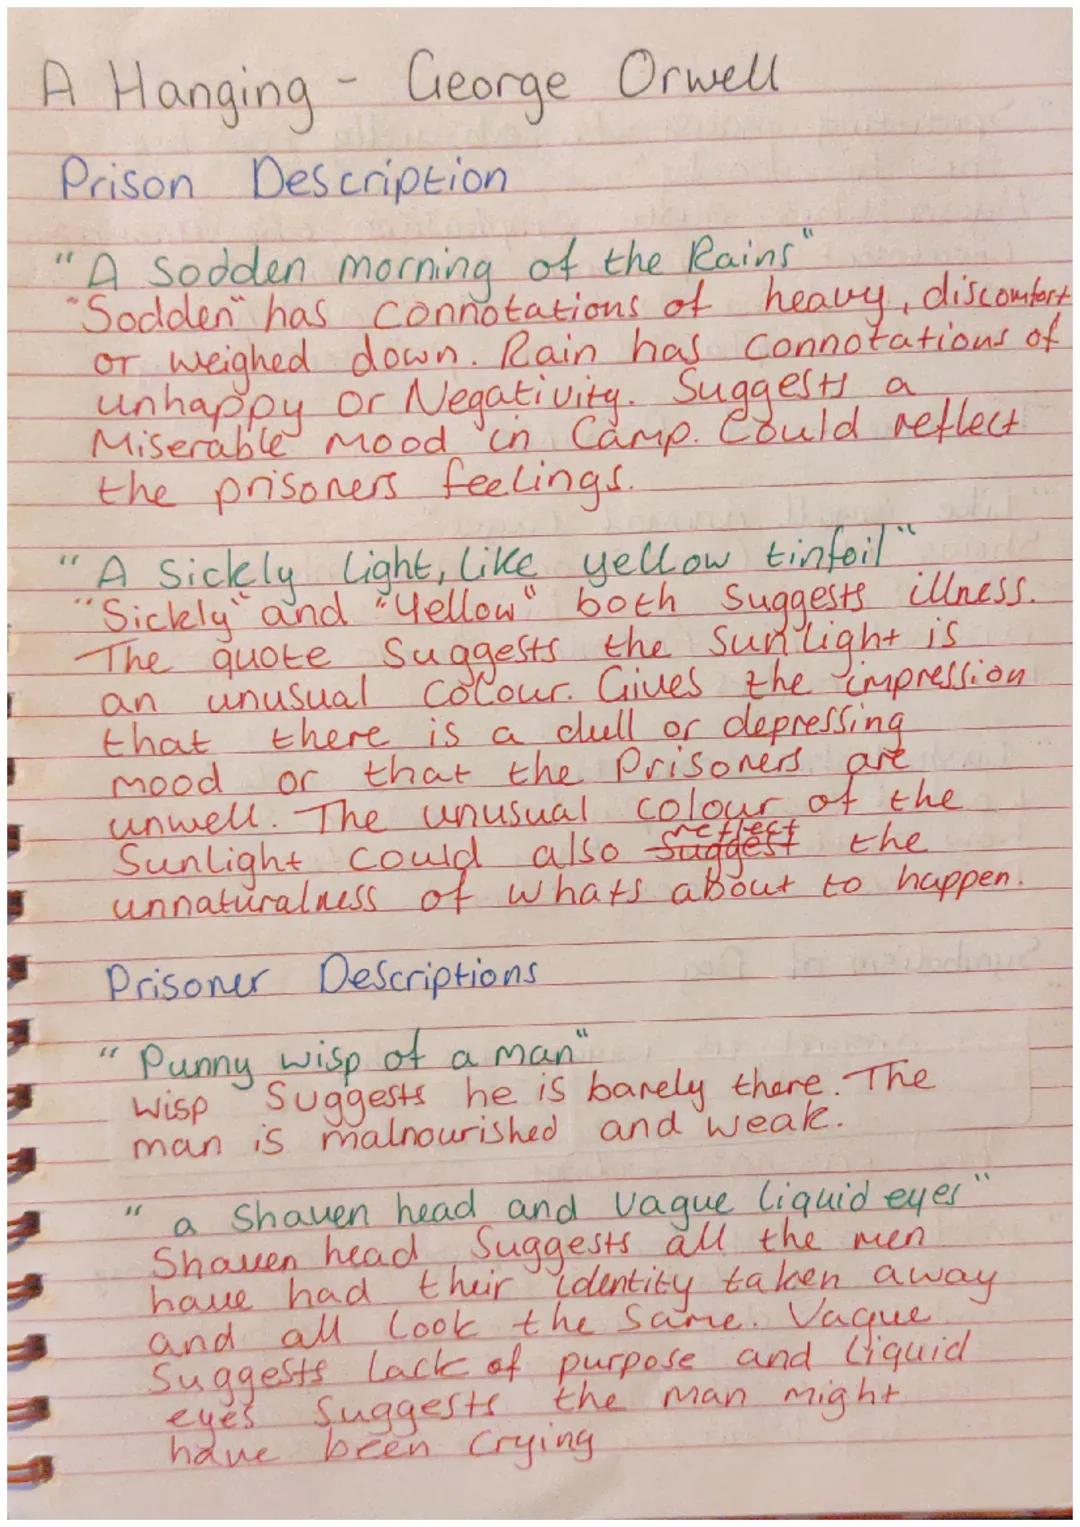 A Hanging - George Orwell
Prison Description
"A Sodden morning of the Rains"
"Sodden" has connotations of heavy, discomfort
or weighed down. Rain has connotations of
unhappy or Negativity. Suggests a
Miserable Mood in Camp. Could reflect
the prisoners feelings.
"A Sickly light, like yellow tinfoil"
"Sickly" and "Yellow" both Suggests illness.
The quote Suggests the Sunlight is
an unusual colour. Gives the impression
that there is a dull or depressing
mood or that the Prisoners are
unwell. The unusual colour of the
Sunlight could also Suggest reflect the
unnaturalness of whats about to happen.
Prisoner Descriptions
"Punny wisp of a man"
Wisp Suggests he is barely there. The
man is malnourished and weak.
"a Shaven head and vague liquid eyes"
Shaven head Suggests all the men
have had their identity taken away
and all look the Same. Vague
Suggests lack of purpose and liquid
eyes Suggests the man might
have been crying